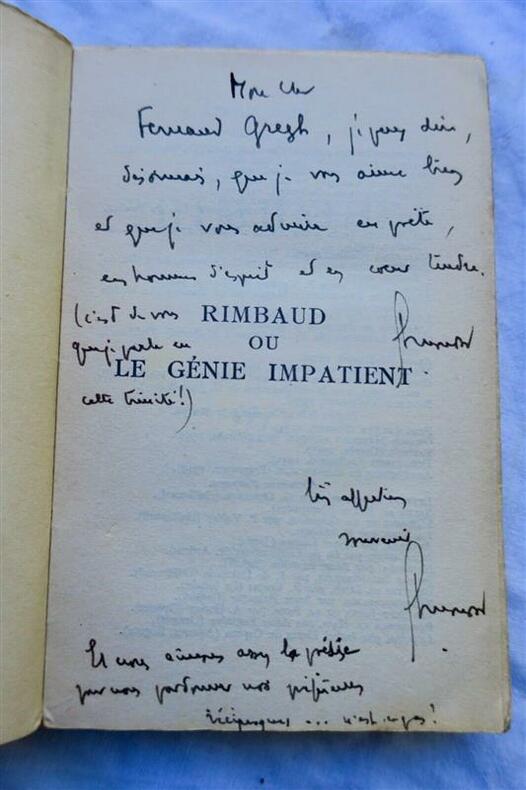 Mon cher
Fernand Gregh, j'peux dire,
désormais, que je vous aime bien
et que je vous admire en poète,
en homme d'esprit et en cœur tendre.
(c'est de vous
que je parle en
cette trinité!)
RIMBAUD
OU
LE GÉNIE IMPATIENT
Très affectueu
Et nous aimons assez la poésie
pour nous pardonner nos préfaces
réciproques ... n'est-ce pas!